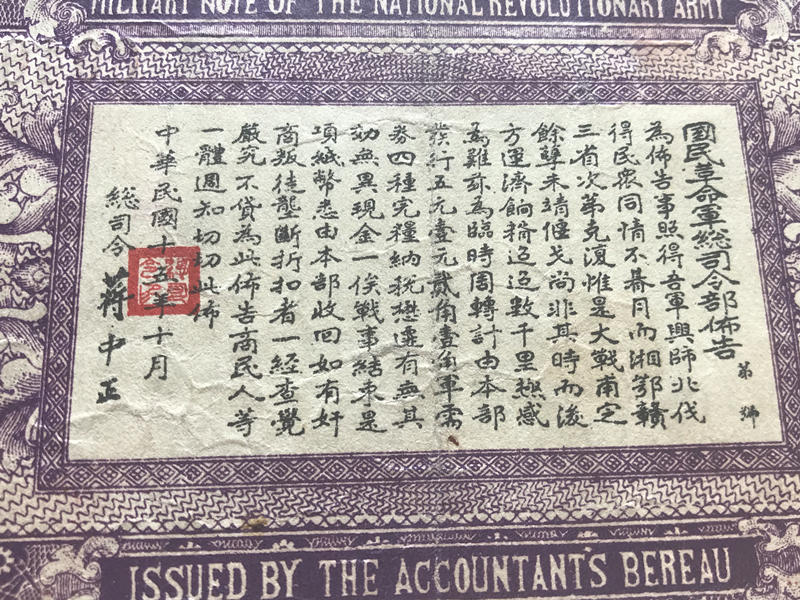 MILITARY NOTE OF THE NATIONAL REVOLUTIONARY ARMY
國民革命軍總司令部佈告
第 號
為佈告事照得吾軍興師北伐
得民眾同情不朞月而湘鄂贛
三省次第克復惟是大戰甫定
餘孽未靖偃戈尚非其時而後
方運濟餉糈迢迢數千里殊感
為難茲為臨時周轉計由本部
發行五元壹元貳角壹角軍需
券四種完糧納稅概準有無其
効無異現金一俟戰事結束是
項紙幣悉由本部收回如有奸
商叛徒壟斷折扣者一經查覺
嚴究不貸為此佈告商民人等
一體週知切切此佈
中華民國十五年十月
總司令蔣中正
ISSUED BY THE ACCOUNTANT'S BEREAU